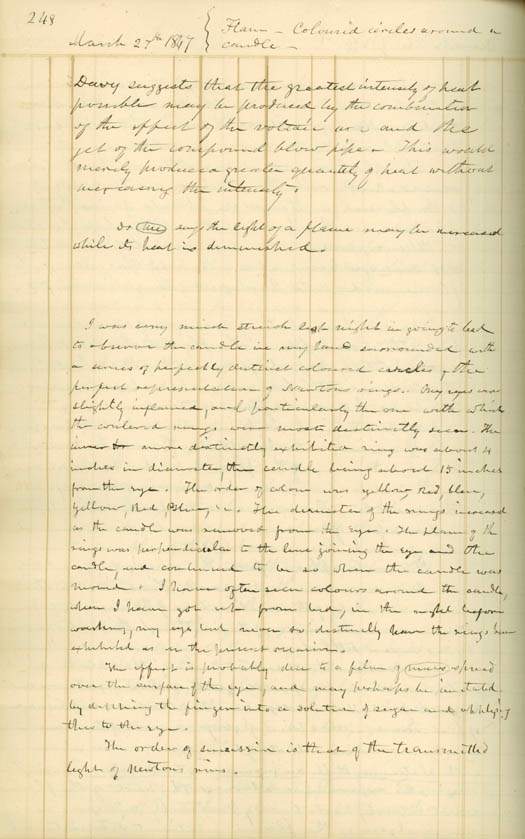 248
March 27th 1847 { Flame - Coloured circles around a
candle -
Davy suggests that the greatest intensity of heat
possible may be produced by the combination
of the effect of the voltaic arc and the
jet of the compound blow pipe - This would
merely produce a greater quantity of heat without
increasing the intensity.
says the light of a flame may be increased
while its heat is diminished.
I was very much struck last night in going to bed
to observe the candle in my hand surrounded with
a series of perfectly distinct coloured circles, the
perfect representation of Newtons rings. My eyes were
slightly inflamed, and particularly the one with which
the coulered rings were most distinctly seen. The
more distinctly exhibited ring was about 4
inches in diameter, the candle being about 15 inches
from the eye. The order of colour was yellow, red, blue,
yellow, Red, Blue, &c. The diameter of the rings increased
as the candle was removed from the eye. The plane of the
rings was perpendicular to the line joining the eye and the
candle, and continued to be so when the candle was
moved. I have often seen colours around the candle,
when I have got up from bed, in the night before
washing, my eye but never so distinctly have the rings been
exhibited as in the present occasion.
The effect is probably due to a film of mucus spread
over the surface of the eye, and may perhaps be imitated
by dipping the finger into a solution of sugar and applying
this to the eye.
The order of succession is that of the transmitted
light of Newtons rings.